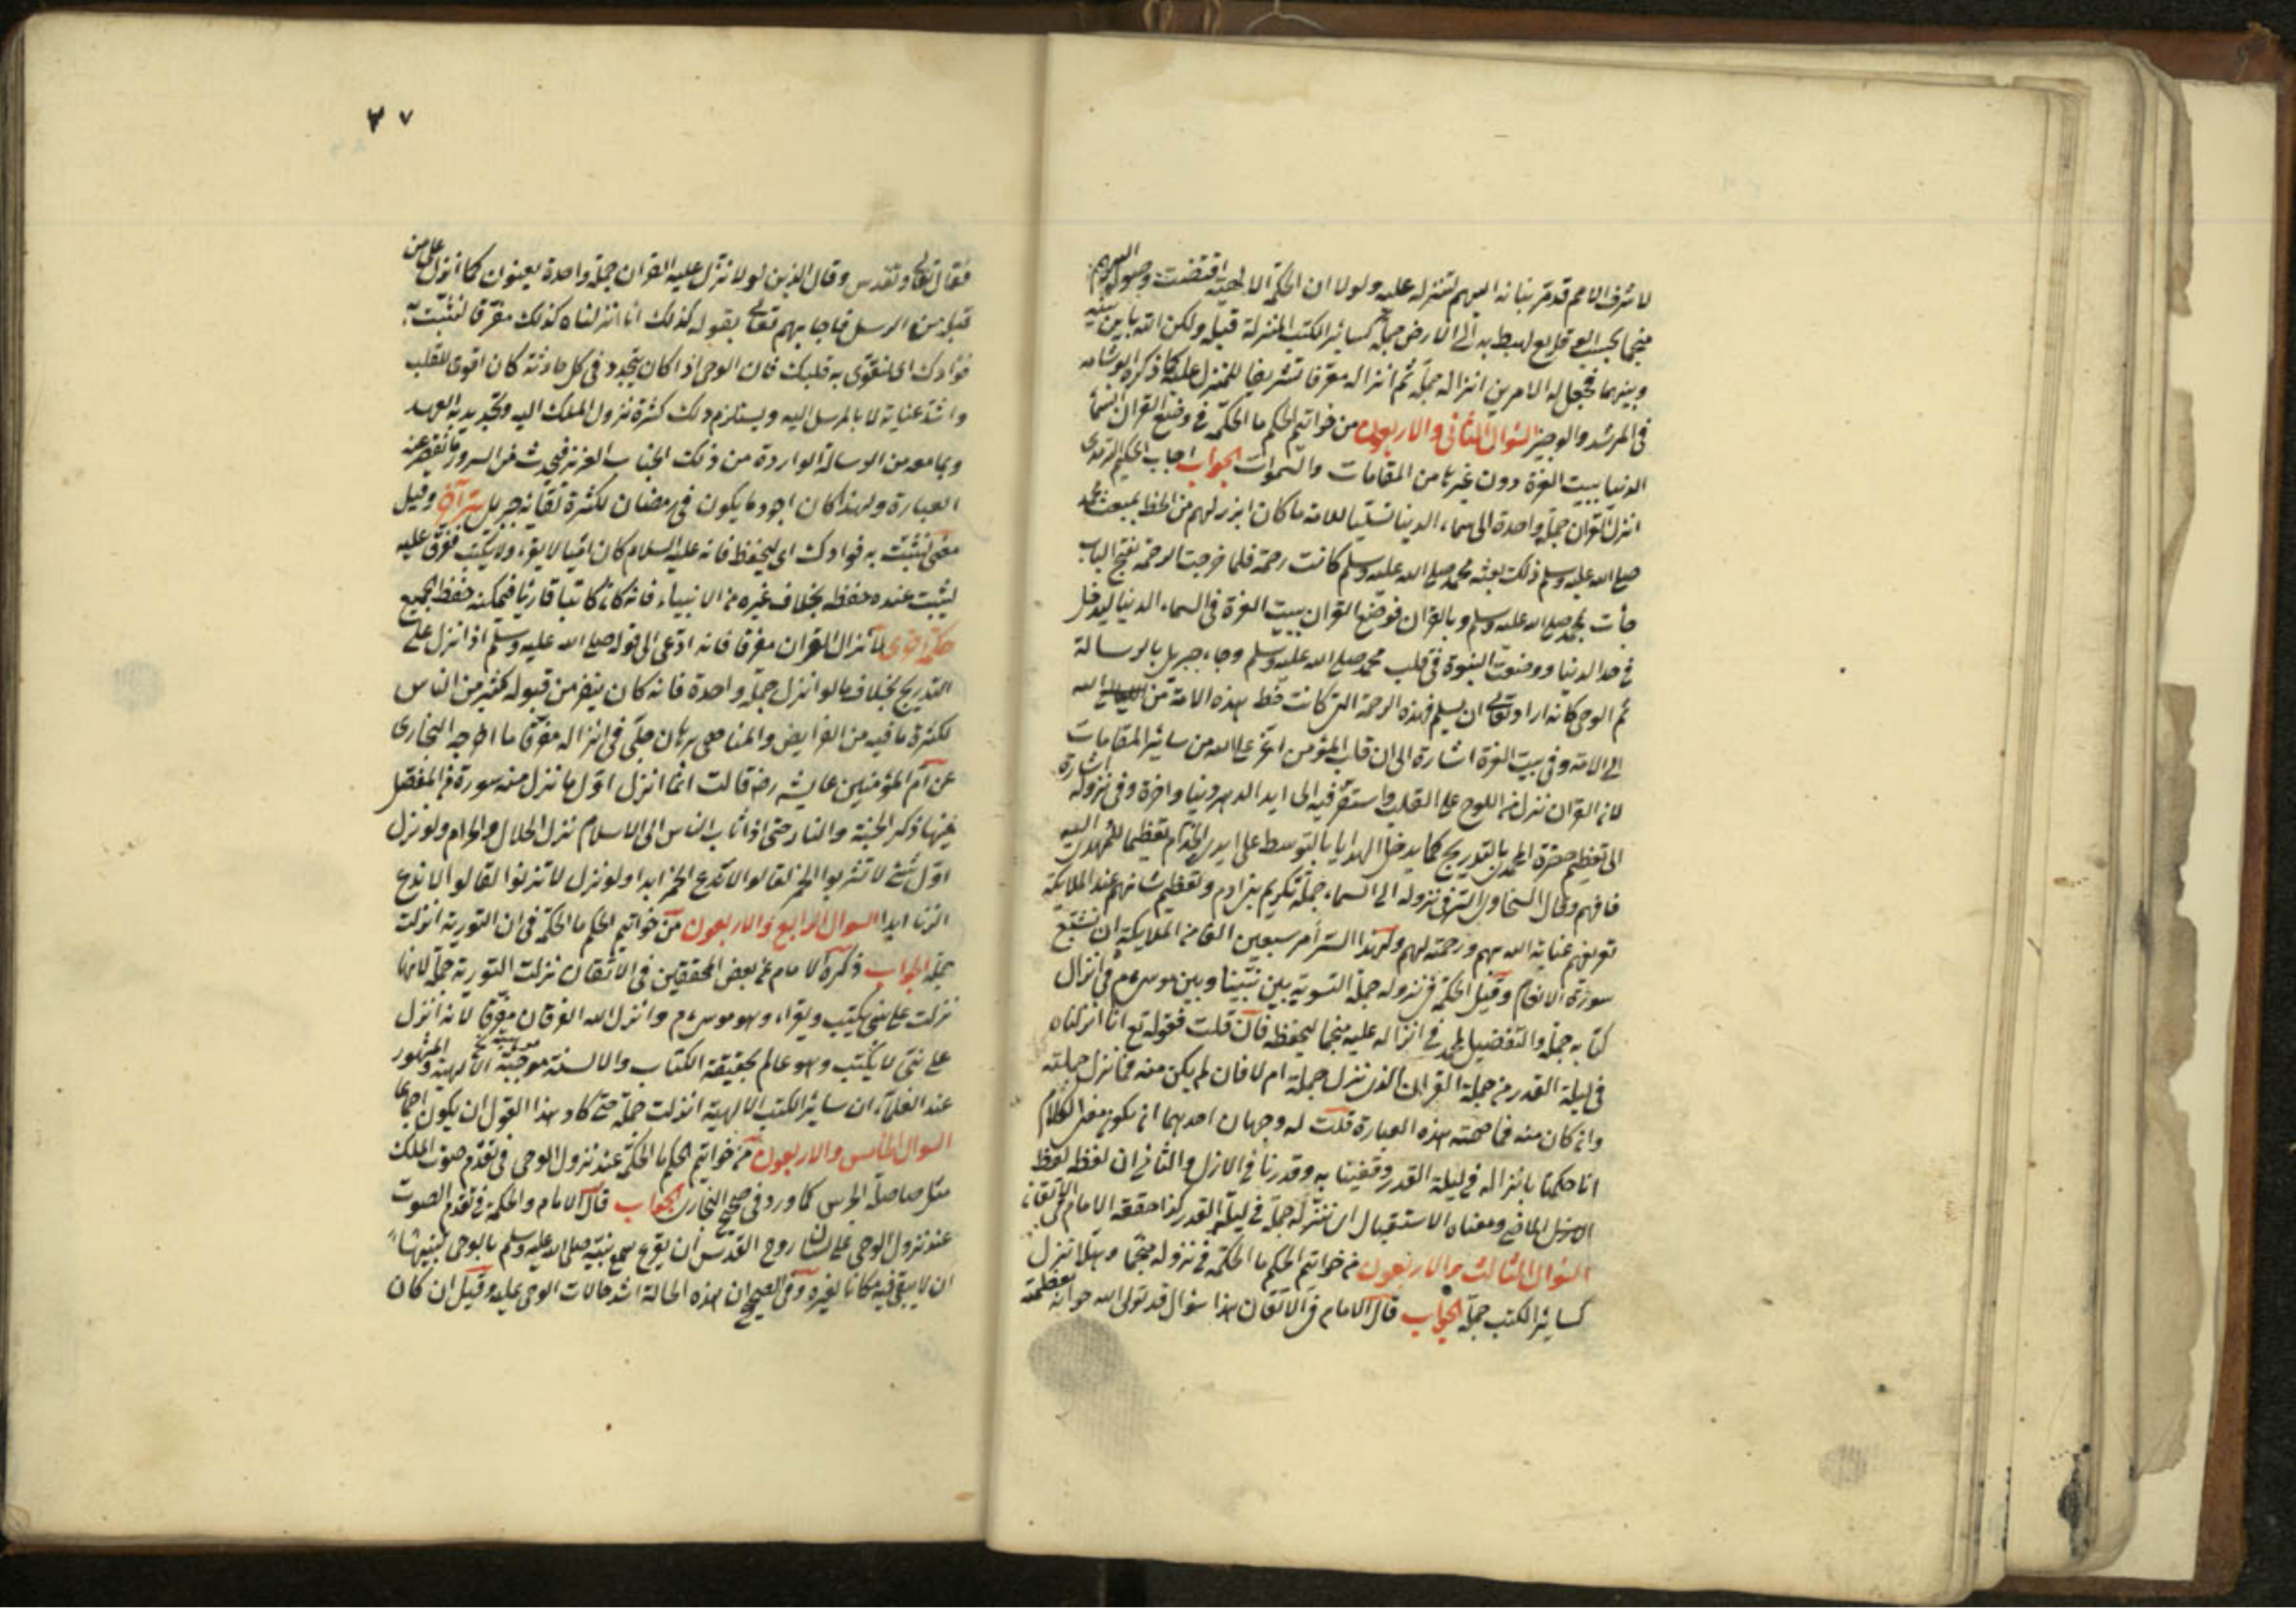 لاشرف الامم قد قربناه اليهم لننزله عليه ولولا ان الحكمة الالهية اقتضت وصوله اليهم
منجما بحسب الوقايع لهبط به الى الارض جملة كسائر الكتب المنزلة قبله ولكن الله باين بينه
وبينها فجعل له الامرين انزاله جملة ثم انزاله مفرقا تشريفا للمنزل عليه كما ذكره ابو شامه
فى المرشد الوجيز السؤال الثانى والاربعون من خواتيم الحكم ما الحكمة فى وضع القرآن السماء
الدنيا ببيت العزة دون غيرها من المقامات والسموات الجواب اجاب الحكيم الترمذى
انزل القرآن جملة واحدة الى سماء الدنيا تسليما للامة ما كان ابرز لهم من الحظ بمبعث محمد
صلى الله عليه وسلم ذلك بعثه محمد صلى الله عليه وسلم كانت رحمة فلما خرجت الرحمة بفتح الباب
جأت بمحمد صلى الله عليه وسلم وبالقرآن فوضع القرآن ببيت العزة فى السماء الدنيا ليدخل
فى حد الدنيا ووضعت النبوة فى قلب محمد صلى الله عليه وسلم وجاء جبريل بالرسالة
ثم الوحى كانه اراد تعالى ان يسلم هذه الرحمة التى كانت حظ هذه الامة من الله
الى الامة وفى بيت العزة اشارة الى ان قلب المؤمن اعز على الله من سائر المقامات
لان القرآن نزل من اللوح على القلب واستقر فيه الى ابد الدهر دنيا واخرة وفى نزوله اشارة
الى تعظيم حضرة المحمدى بالتدريج كما يدخل الهدايا بالتوسط على ايدى الخدام تعظيما للمهدى اليه
فافهم وقال السخاوى السر فى نزوله الى السماء جملة تكريم بنى ادم وتعظيم شانهم عند الملايكة
تعريفهم عناية الله بهم ورحمته لهم ولهذا السر أمر سبعين الفا من الملايكة ان تشيع
سورة الانعام وقيل الحكمة فى نزوله جملة التسوية بين نبينا وبين موسى م فى انزال
كتابه جملة والتفضيل لمحمد فى انزاله عليه منجما ليحفظه فان قلت فقوله تع انا انزلناه
فى ليلة القدر من جملة القرآن الذى نزل جملة ام لا فان لم يكن منه فما نزل جملة
وان كان منه فما صحته هذه العبارة قلت له وجهان احدهما ان يكون معنى الكلام
انا حكمنا بانزاله فى ليلة القدر وقضينا به وقدرنا فى الازل والثانى ان لفظه لفظ
الماضى ومعناه الاستقبال اى ننزله جملة فى ليلة القدر كذا حققه الامام فى الاتقان
السؤال الثالث والاربعون من خواتيم الحكم ما الحكمة فى نزوله منجما وهلا نزل
كسائر الكتب جملة الجواب قال الامام فى الاتقان هذا سؤال قد تولى الله جوابه بعظمته
٢٧
فقال تعالى وتقدس وقال الذين لولا نزل عليه القرآن جملة واحدة يعنون كما انزل على من
قبله من الرسل فاجابهم تعالى بقوله كذلك اى انزلناه كذلك مفرقا لنثبت به
فؤادك اى لنقوى به قلبك فان الوحى اذا كان يتجدد فى كل حادثة كان اقوى للقلب
واشد عناية بالمرسل اليه ويستلزم ذلك كثرة نزول الملك اليه وتجديد به العهد
وبما معه من الرسالة الواردة من ذلك الجناب العزيز فيحدث من السرور ما يقصر عنه
العبارة ولهذا كان اجود ما يكون فى رمضان لكثرة لقائه جبريل وقيل
معنى لنثبت به فؤادك اى ليحفظ فانه عليه السلام كان اميا لا يقرء ولا يكتب ففرق عليه
ليثبت عنده حفظه بخلاف غيره من الانبياء فانه كان كاتبا قاريا فيمكنه حفظ الجميع
حكمة اخرى لانزال القرآن مفرقا فانه ادعى الى قوله صلى الله عليه وسلم اذا نزل على
التدريج بخلاف ما لو انزل جملة واحدة فانه كان ينفر من قبوله كثير من الناس
لكثرة ما فيه من الفرايض والمناهى برهان جلى فى انزاله مفرقا ما اخرجه البخارى
عن ام المؤمنين عايشه رضه قالت انما انزل اول ما نزل منه سورة من المفصل
فيها ذكر الجنة والنار حتى اذا ثاب الناس الى الاسلام نزل الحلال والحرام ولو نزل
اول شئ لا تشربوا الخمر لقالوا لا ندع الخمر ابدا ولو نزل لا تزنوا لقالوا لا ندع
الزنا ابدا السوال الرابع والاربعون من خواتيم الحكم ما الحكمة فى ان التورية انزلت
جملة الجواب ذكره الامام عن بعض المحققين فى الاتقان نزلت التورية جملة لانها
نزلت على نبى يكتب ويقراء وهو موسى م وانزل الله الفرقان مفرقا لانه انزل
على نبى لا يكتب وهو عالم بحقيقة الكتاب والالسنة موهبة الالهية والمشهور
عند العلماء ان سائر الكتب الالهية انزلت جملة حتى كاد هذا القول ان يكون اجماعا
السوال الخامس والاربعون من خواتيم الحكم ما الحكمة عند نزول الوحى فى تقدم صوت الملك
مثل صلصلة الجرس كما ورد فى صحيح البخارى الجواب قال الامام والحكمة فى تقدم الصوت
عند نزول الوحى على لسان روح القدس ان يقرع سمع نبيه صلى الله عليه وسلم بالوحى
ان لا يبقى فيه مكانا لغيره وفى الصحيح ان هذه الحالة اشد حالات الوحى عليه وقيل ان كان